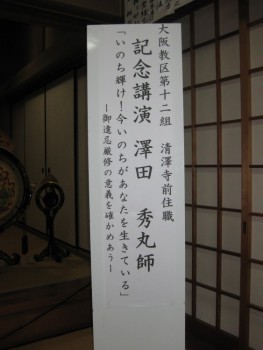 大阪教区第十二組　清澤寺前住職
記念講演　澤田　秀丸師
「いのち輝け！今いのちがあなたを生きている」
―御遠忌厳修の意義を確かめあう―